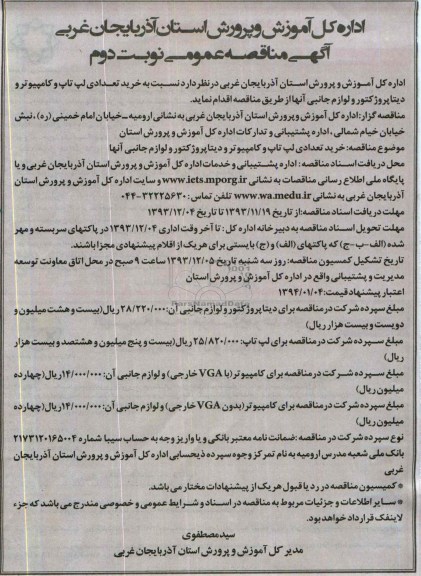 اداره کل آموزش و پرورش استان آذربایجان غربی
آگهی مناقصه عمومی نوبت دوم
اداره کل آموزش و پرورش استان آذربایجان غربی در نظر دارد نسبت به خرید تعدادی لپ تاپ و کامپیوتر و
دیتا پروژکتور و لوازم جانبی آنها از طریق مناقصه اقدام نماید.
مناقصه گزار: اداره کل آموزش و پرورش استان آذربایجان غربی به نشانی ارومیه ـ خیابان امام خمینی (ره)، نبش
خیابان خیام شمالی، اداره پشتیبانی و تدارکات اداره کل آموزش و پرورش استان
موضوع مناقصه: خرید تعدادی لپ تاپ و کامپیوتر و دیتا پروژکتور و لوازم جانبی آنها
محل دریافت اسناد مناقصه: اداره پشتیبانی و خدمات اداره کل آموزش و پرورش استان آذربایجان غربی و یا
پایگاه ملی اطلاع رسانی مناقصات به نشانی www.iets.mporg.ir و سایت اداره کل آموزش و پرورش استان
آذربایجان غربی به نشانی www.wa.medu.ir تلفن تماس: ۳۲۲۲۵۶۳۰-۰۴۴
مهلت دریافت اسناد مناقصه: از تاریخ ۱۳۹۳/۱۱/۱۹ تا تاریخ ۱۳۹۳/۱۲/۰۴
مهلت تحویل اسناد مناقصه به دبیرخانه اداره کل: تا آخر وقت اداری ۱۳۹۳/۱۲/۰۴ در پاکتهای سربسته و مهر
شده (الف-ب-ج) که پاکتهای (الف) و (ج) بایستی برای هر یک از اقلام پیشنهادی مجزا باشند.
تاریخ تشکیل کمسیون مناقصه: روز سه شنبه تاریخ ۱۳۹۳/۱۲/۰۵ ساعت ۹ صبح در محل اتاق معاونت توسعه
مدیریت و پشتیبانی واقع در اداره کل آموزش و پرورش استان
اعتبار پیشنهاد قیمت: ۱۳۹۴/۰۱/۰۴
مبلغ سپرده شرکت در مناقصه برای دیتا پروژکتور و لوازم جانبی آن: ۲۸/۲۲۰/۰۰۰ ریال (بیست و هشت میلیون و
دویست و بیست هزار ریال)
مبلغ سپرده شرکت در مناقصه برای لپ تاپ: ۲۵/۸۲۰/۰۰۰ ریال (بیست و پنج میلیون و هشتصد و بیست هزار
ریال)
مبلغ سپرده شرکت در مناقصه برای کامپیوتر (با VGA خارجی) و لوازم جانبی آن: ۱۴/۰۰۰/۰۰۰ ریال (چهارده
میلیون ریال)
مبلغ سپرده شرکت در مناقصه برای کامپیوتر (بدون VGA خارجی) و لوازم جانبی آن: ۱۴/۰۰۰/۰۰۰ ریال (چهارده
میلیون ریال)
نوع سپرده شرکت در مناقصه: ضمانت نامه معتبر بانکی و یا واریز وجه به حساب سیبا شماره ۲۱۷۳۱۲۰۱۶۵۰۰۴
بانک ملی شعبه مدرس ارومیه به نام تمرکز وجوه سپرده ذیحسابی اداره کل آموزش و پرورش استان آذربایجان
غربی
* کمیسیون مناقصه در رد یا قبول هر یک از پیشنهادات مختار می باشد.
* سایر اطلاعات و جزئیات مربوط به مناقصه در اسناد و شرایط عمومی و خصوصی مندرج می باشد که جزء
لاینفک قرارداد خواهد بود.
سید مصطفوی
مدیر کل آموزش و پرورش استان آذربایجان غربی